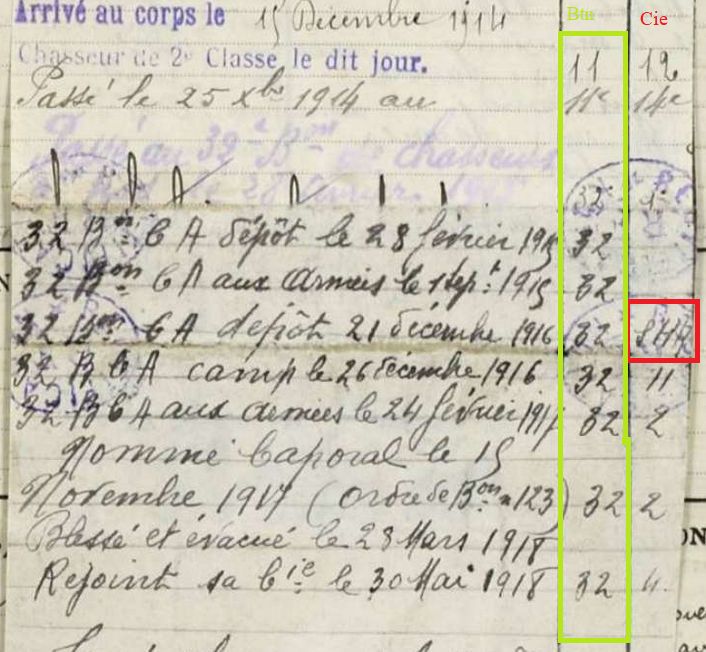 Btn Cie
Arrivé au corps le 15 Décembre 1914
Chasseur de 2e Classe, le dit jour. 11 12
Passé le 25 Xbre 1914 au 11e 14e
Passé au 32e Bon de chasseurs
le 28 février 1915 32
32 Bon C A dépôt le 28 février 1915 32
32 Bon C A aux Armées le 1 Sept. 1915 32
32 Bon C A dépôt 21 décembre 1916 32
32 B C A camp le 26 décembre 1916 32 11
32 B C A aux armées le 24 février 1917 32 2
Nommé Caporal le 15
Novembre 1917 (ordre de Bon n 123) 32 2
Blessé et évacué le 28 Mars 1918
Rejoint sa Cie le 30 Mai 1918 32 4.